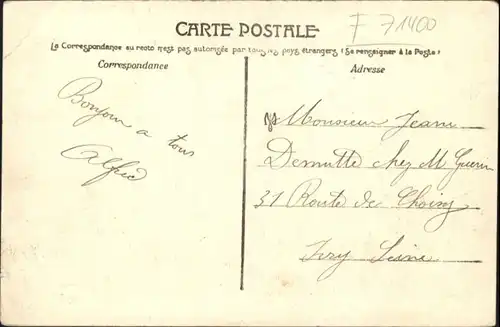 CARTE POSTALE
F 71400
La Correspondance au recto n'est pas autorisée par tous les pays étrangers (Se renseigner à la Poste)
Correspondance
Adresse
Bonjour a tous
Alfred
Monsieur Jean
Demutte chez M Guerin
31 Route de Choisy
Ivry Seine